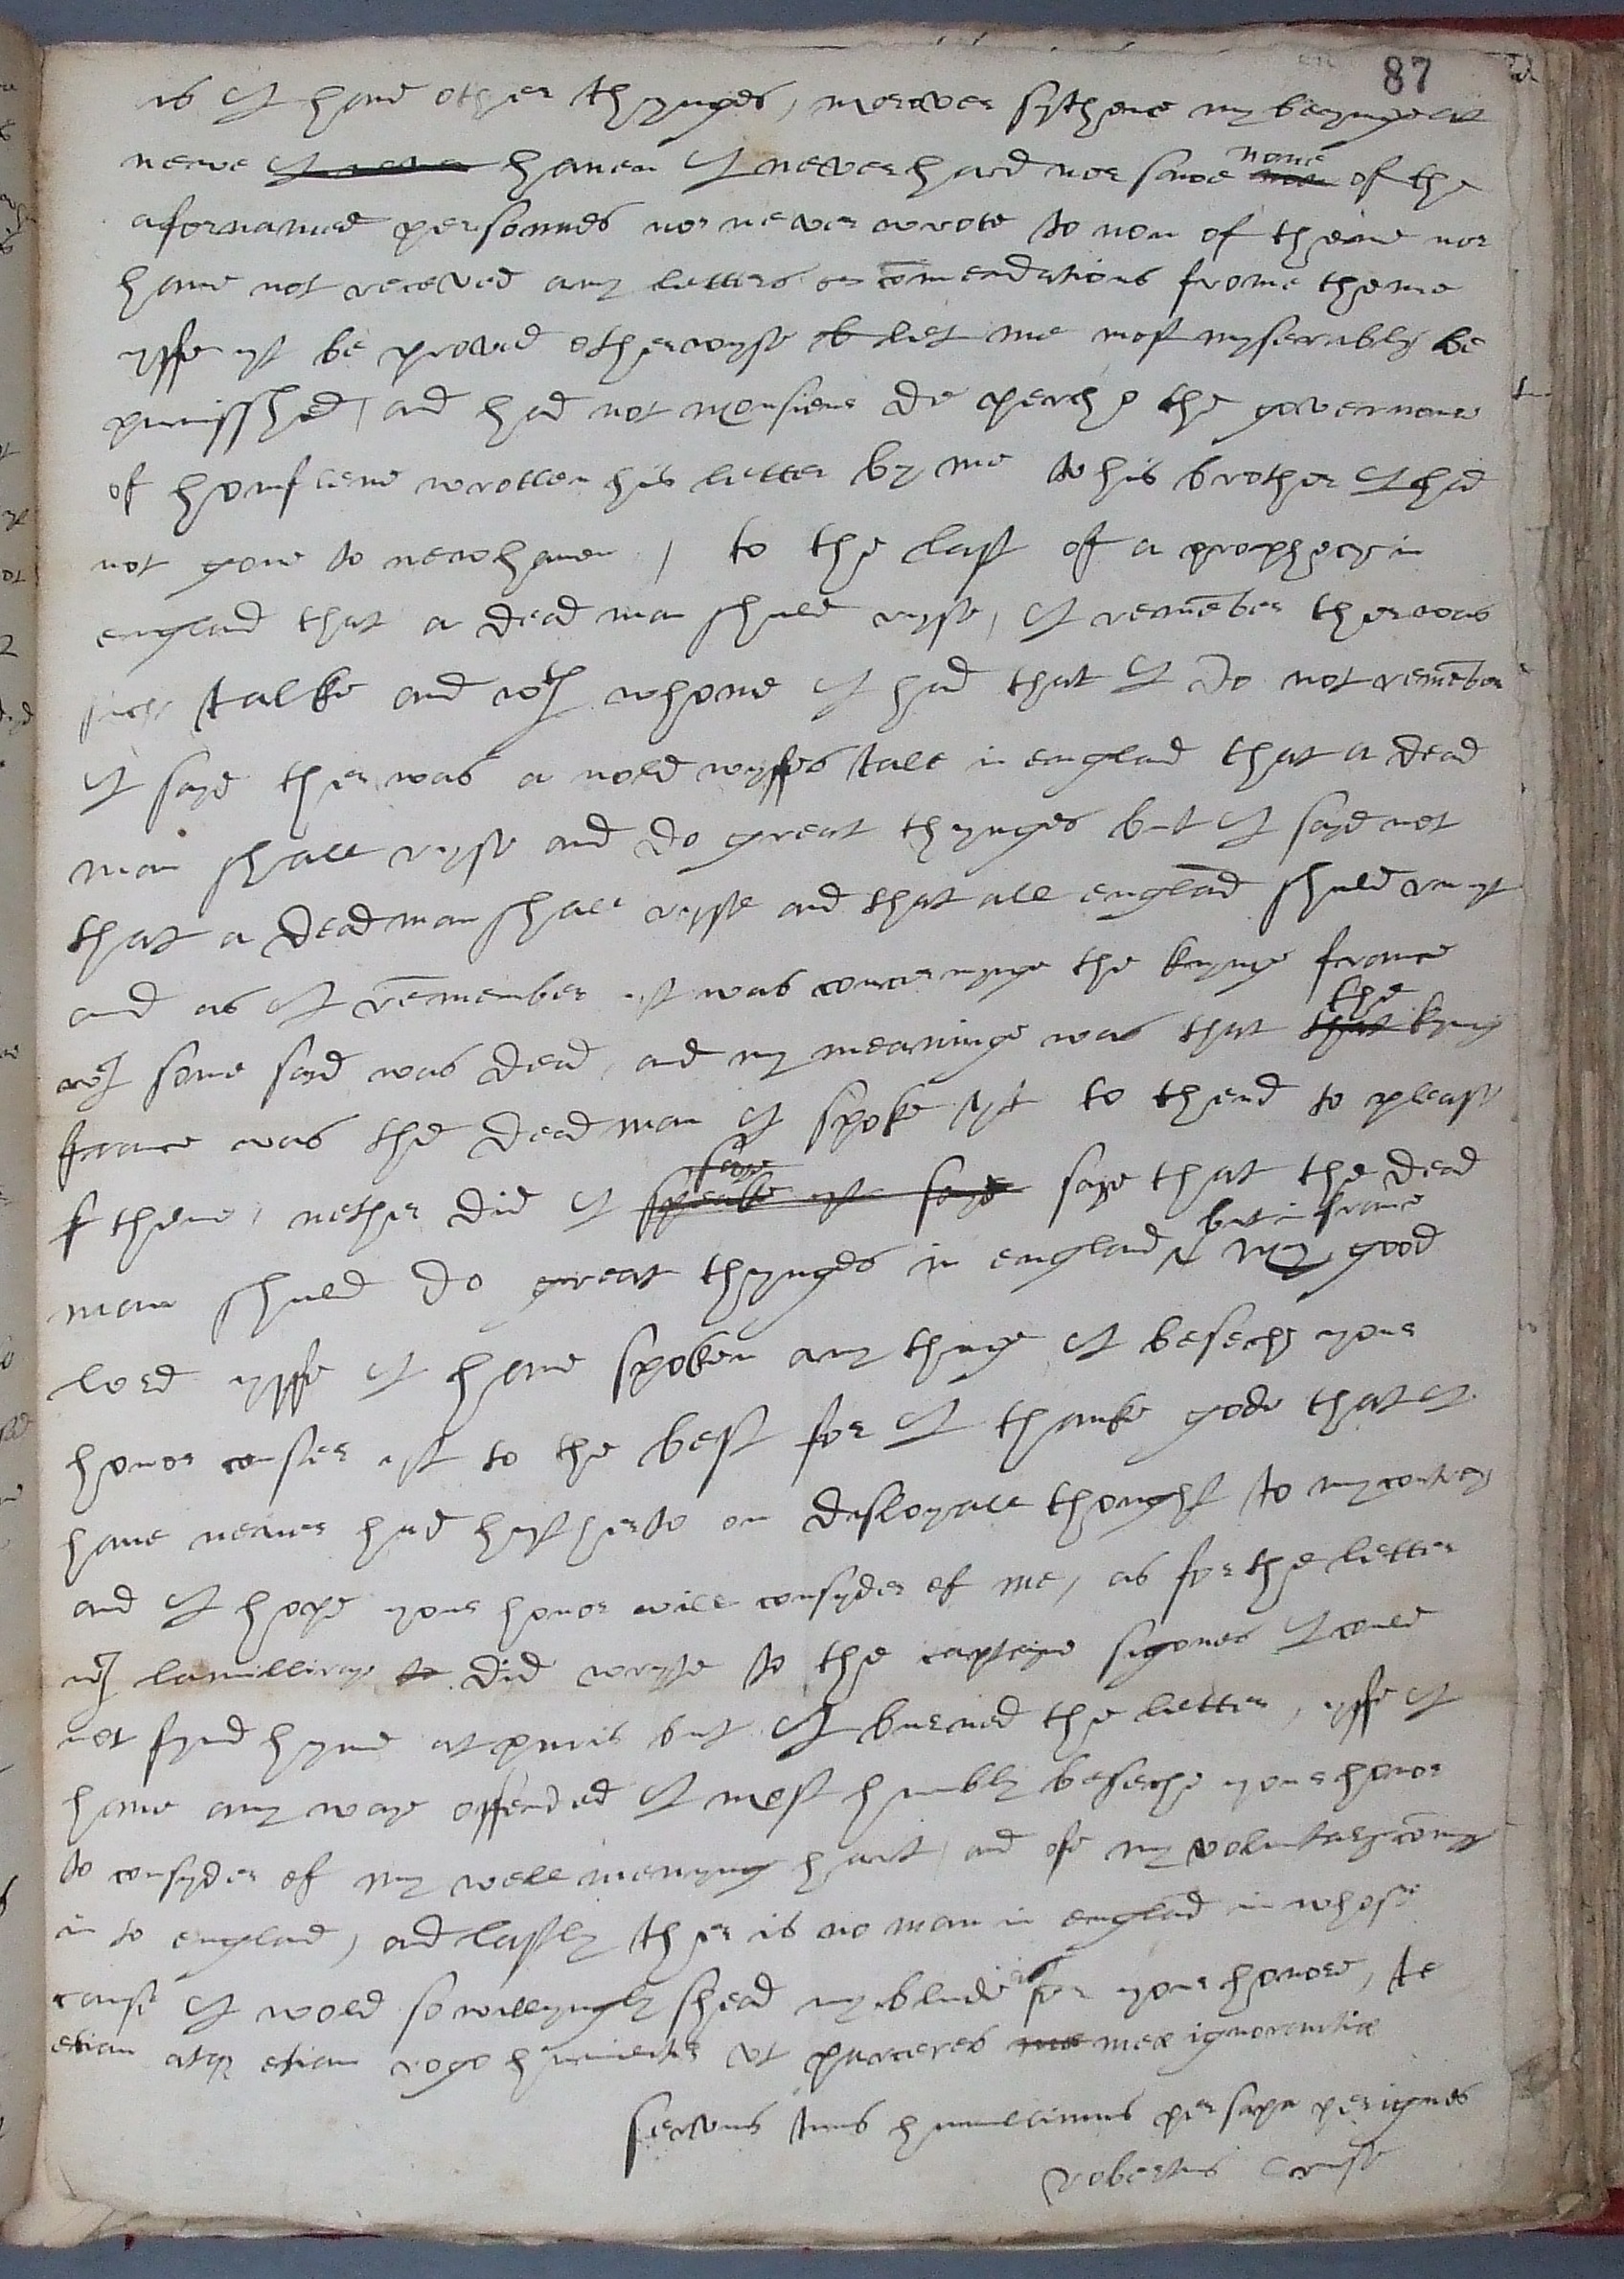 87
as I have other thynges, moreover sythene my beynge at
newe I never haven I never hard nor sawe non none of the
afornamed personnes nor never wrote to non of theme nor
have not receved any letters or comendations frome theme
yffe yt be proved otherwyse b let me most myserably be
punisshed, and had not monsieur de perche the governour
of honflewe wrotten his letter by me to his brother I had
not gone to newhaven, to the last of a prophecy in
england that a dead man shuld ryse, I remember ther was
suche talke and wth whome I had that I do not remember
I sayd ther was a nold wyffes tale in england that a dead
man shall ryse and do great thynges but I sayd not
that a dead man shall rysse and that all england shuld rue yt
and as I remember yt was concernynge the kynge france
wch some sayd was dead, and my meaninge was that that the kyng
france was the dead man I spoke yt to thend to please
f theme, nether did I speake yt sayd saye saye that the dead
man shuld do great thynges in england but in france my good
lord yffe I have spoken any thing I besech your
honor conster yt to the best for I thanke gode that I
have never had hytherto on disloyall thought to my contrey
and I hope your honor will consyder of me, as for the letter
wch lamilliraye to did wryte to the captayne sigones I could
not fynd hyme at paris but I burned the letter, yffe I
have any waye offended I most humbly beseche your honor
to consyder of my well menynge hart, and ofe my voluntary comyng
in to england, and lastly ther is no man in england in whose
cause I wold so willyngly shead my blude for your honore, te
etiam atque etiam rogo humiliter ut parceres me meæ ignorantiæ
servus tuus humillimus per saxa per ignes
robertus Cruse